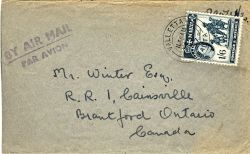 BY AIR MAIL
PAR AVION
VALLETTA
MALTA
1/6
Mr. Winter Esq.
R. R. 1, Cainsville
Brantford Ontario
Canada